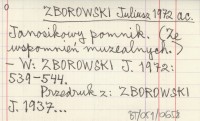 ZBOROWSKI Juliusz 1972 ac.
Janosikowy pomnik. (Ze
wspomnień muzealnych.)
- W: ZBOROWSKI J. 1972:
539-544.
Przedruk z: ZBOROWSKI
J. 1937...